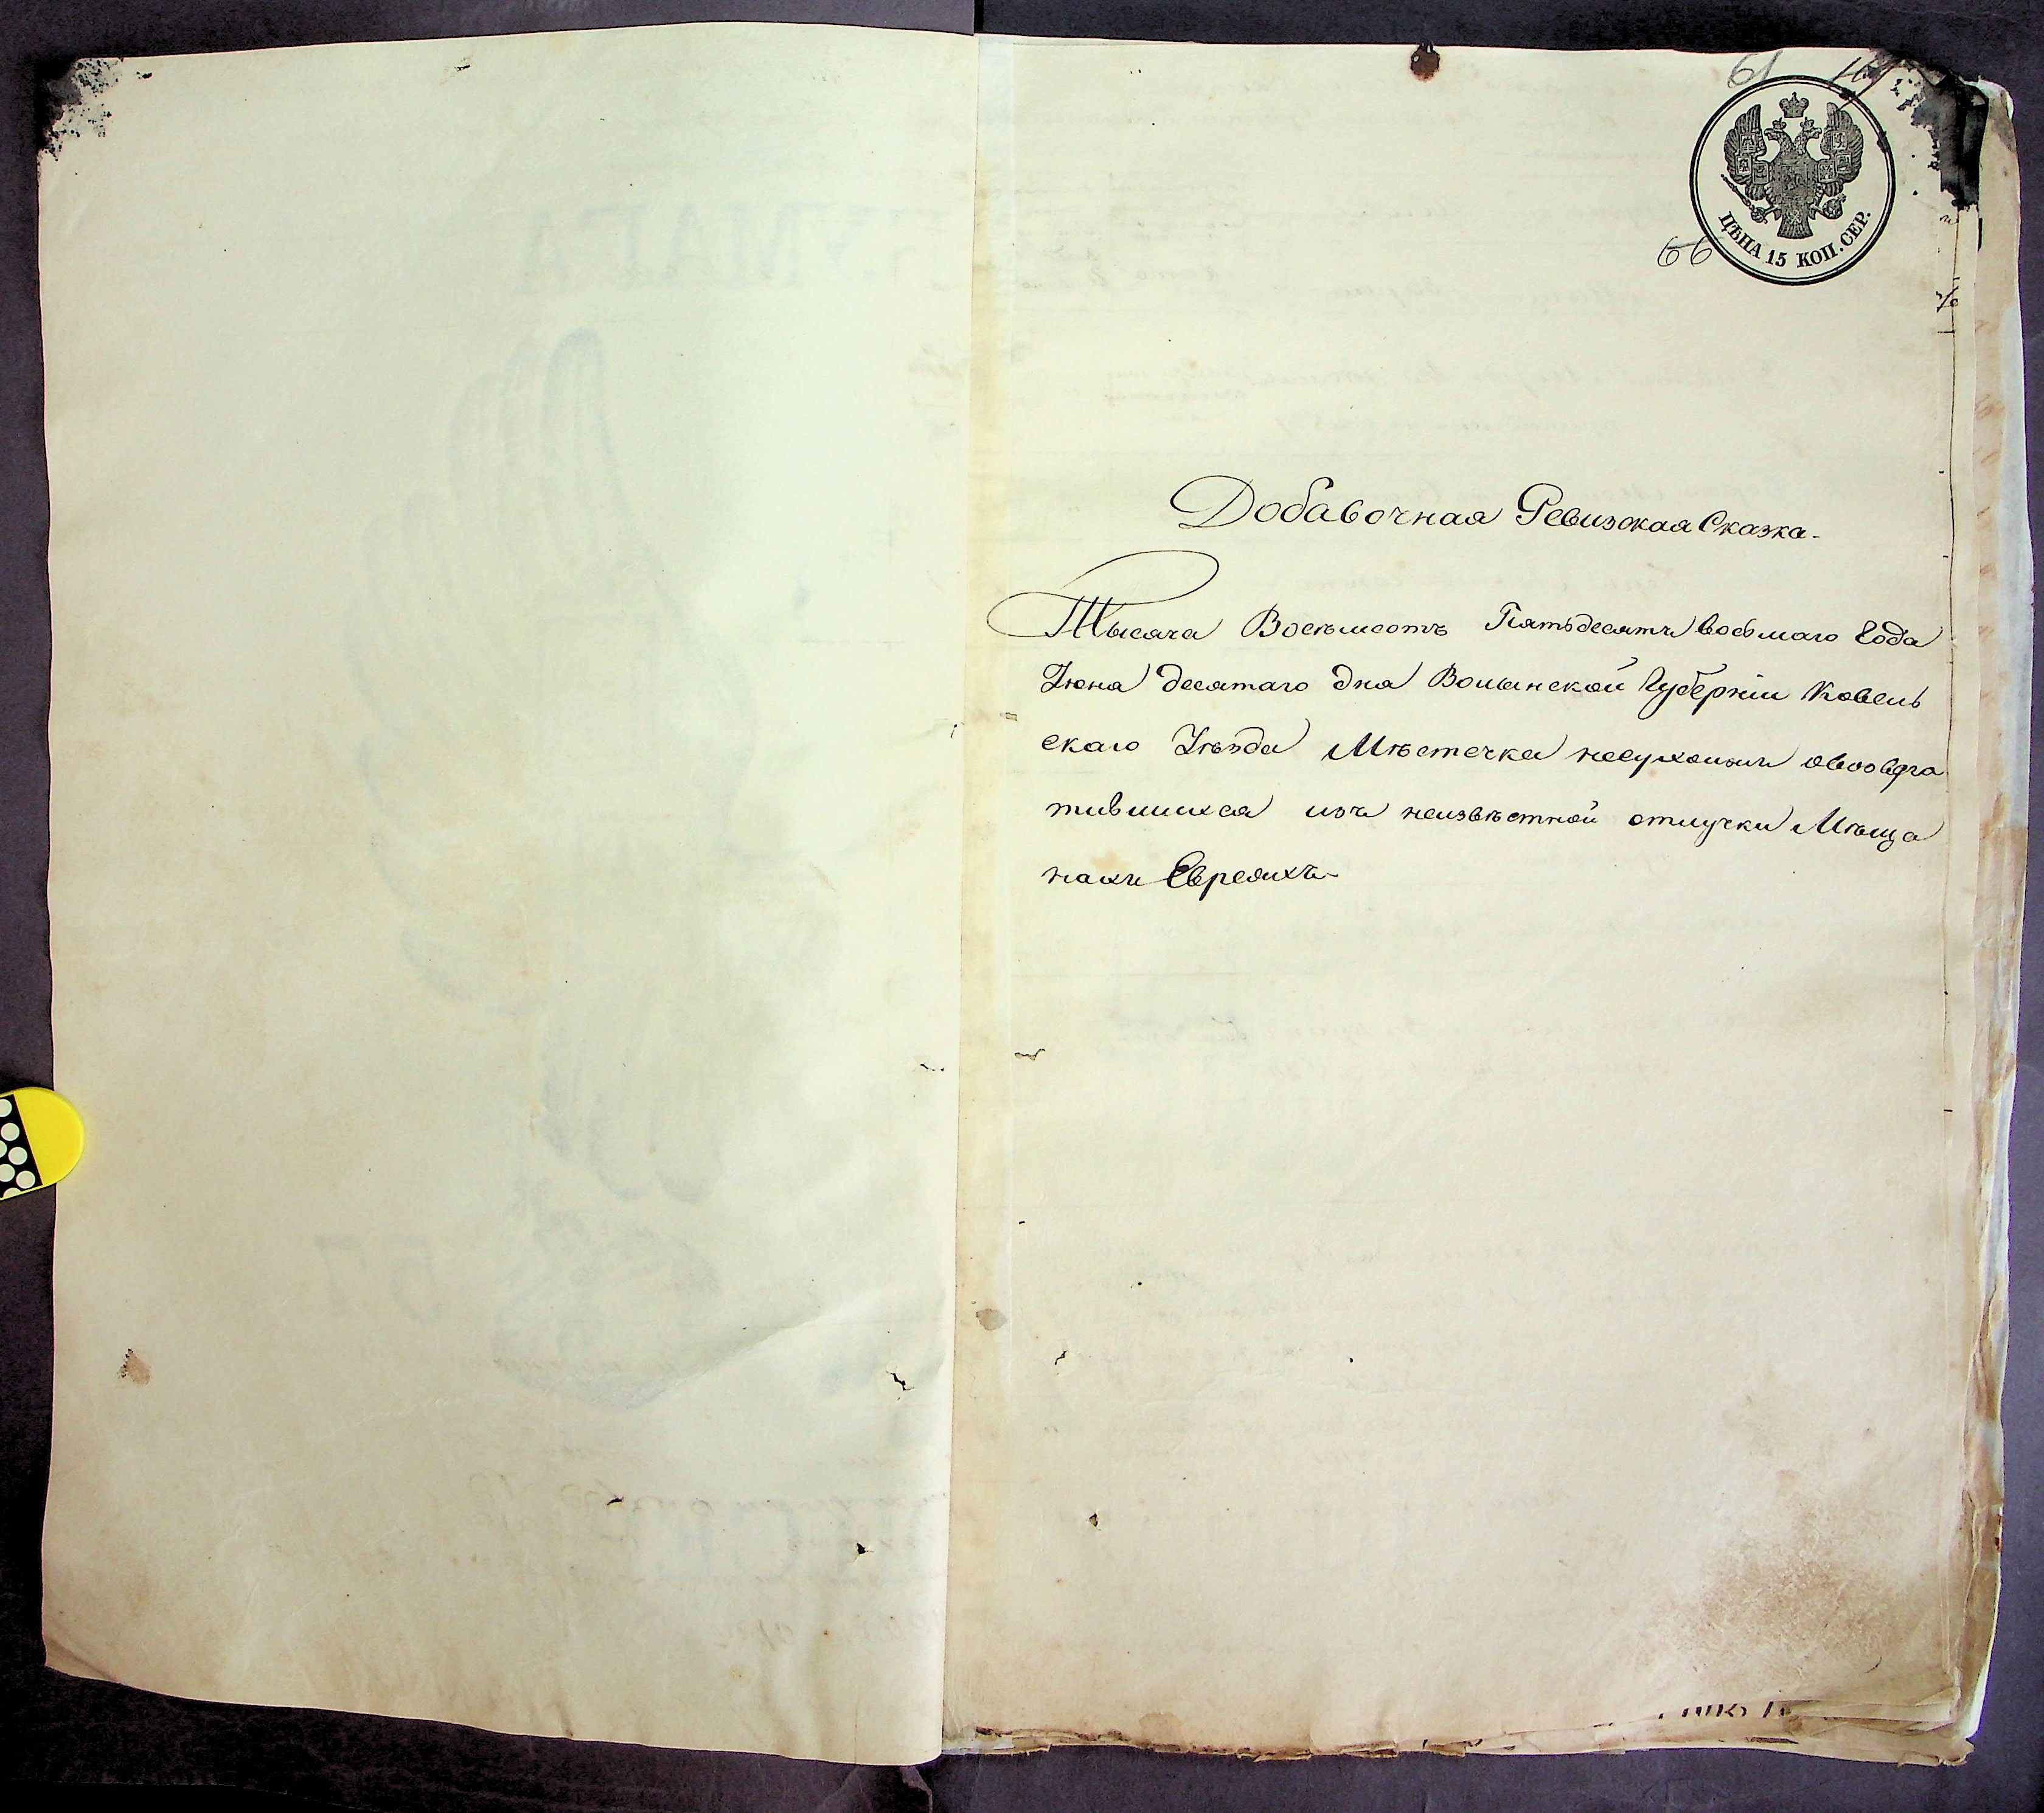 61
ЦѢНА 15 КОП. СЕР.
66
Добавочная Ревизская Сказка.
Тысяча Восѣмсотъ Пятьдесятъ восьмаго Года
Іюня десятаго дня Волынской Губерніи Ковель
скаго Уѣзда Мѣстечка Несухоижъ овозвра
тившихся изъ неизвѣстной отлучки Мѣща
нахъ Евреяхъ